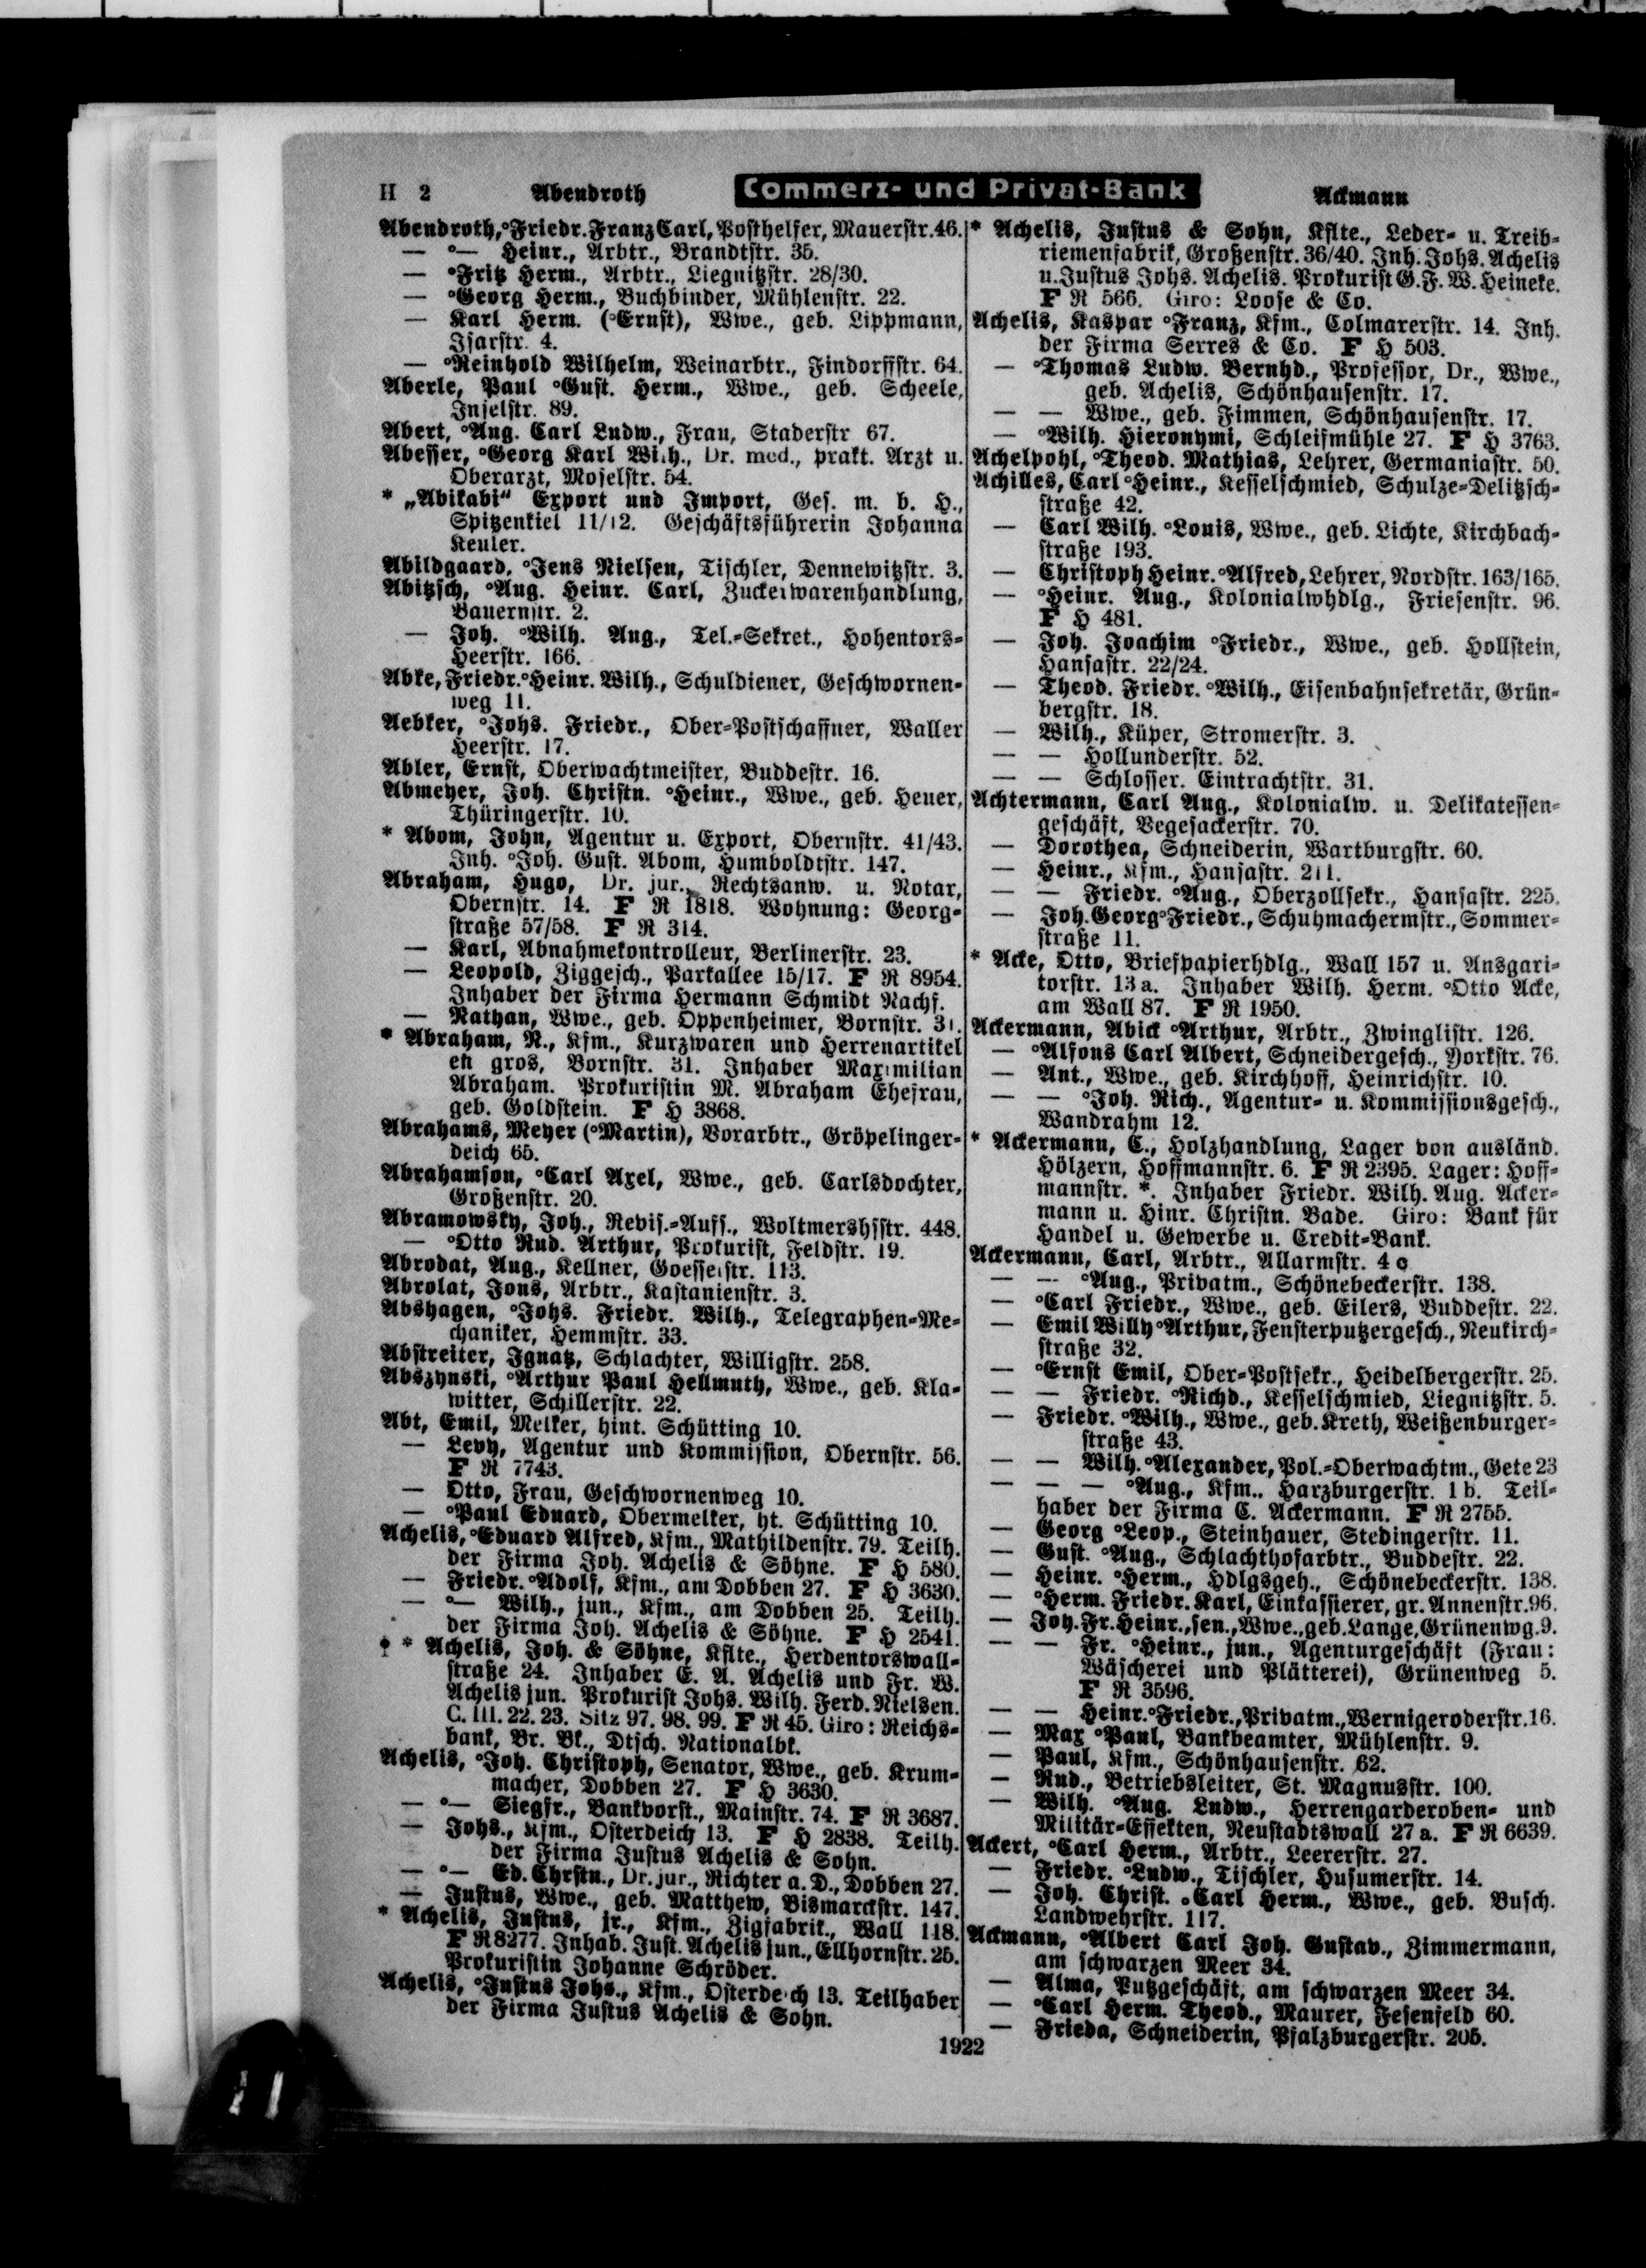 H 2 Abendroth Commerz- und Privat-Bank Ackmann
Abendroth, °Friedr. Franz Carl, Posthelfer, Mauerstr. 46.
— °— Heinr., Arbtr., Brandtstr. 35.
— °Fritz Herm., Arbtr., Liegnitzstr. 28/30.
— °Georg Herm., Buchbinder, Mühlenstr. 22.
— Karl Herm. (°Ernst), Wwe., geb. Lippmann,
Isarstr. 4.
— °Reinhold Wilhelm, Weinarbtr., Findorffstr. 64.
Aberle, Paul °Gust. Herm., Wwe., geb. Scheele,
Inselstr. 89.
Abert, °Aug. Carl Ludw., Frau, Staderstr 67.
Abesser, °Georg Karl Wilh., Dr. med., prakt. Arzt u.
Oberarzt, Moselstr. 54.
* „Abikabi“ Export und Import, Ges. m. b. H.,
Spitzenkiel 11/12. Geschäftsführerin Johanna
Keuler.
Abildgaard, °Jens Nielsen, Tischler, Dennewitzstr. 3.
Abitzsch, °Aug. Heinr. Carl, Zuckerwarenhandlung,
Bauernstr. 2.
— Joh. °Wilh. Aug., Tel.-Sekret., Hohentors-
Heerstr. 166.
Abke, Friedr. °Heinr. Wilh., Schuldiener, Geschwornen-
weg 11.
Aebker, °Johs. Friedr., Ober-Postschaffner, Waller
Heerstr. 17.
Abler, Ernst, Oberwachtmeister, Buddestr. 16.
Abmeyer, Joh. Christn. °Heinr., Wwe., geb. Heuer,
Thüringerstr. 10.
* Abom, John, Agentur u. Export, Obernstr. 41/43.
Inh. °Joh. Gust. Abom, Humboldtstr. 147.
Abraham, Hugo, Dr. jur., Rechtsanw. u. Notar,
Obernstr. 14. F R 1818. Wohnung: Georg-
straße 57/58. F R 314.
— Karl, Abnahmekontrolleur, Berlinerstr. 23.
— Leopold, Ziggesch., Parkallee 15/17. F R 8954.
Inhaber der Firma Hermann Schmidt Nachf.
— Nathan, Wwe., geb. Oppenheimer, Bornstr. 31.
* Abraham, N., Kfm., Kurzwaren und Herrenartikel
en gros, Bornstr. 31. Inhaber Maximilian
Abraham. Prokuristin M. Abraham Ehefrau,
geb. Goldstein. F H 3868.
Abrahams, Meyer (°Martin), Vorarbtr., Gröpelinger-
deich 65.
Abrahamson, °Carl Axel, Wwe., geb. Carlsdochter,
Großenstr. 20.
Abramowsky, Joh., Revis.-Auff., Woltmershsstr. 448.
— °Otto Rud. Arthur, Prokurist, Feldstr. 19.
Abrodat, Aug., Kellner, Goesselstr. 113.
Abrolat, Jons, Arbtr., Kastanienstr. 3.
Abshagen, °Johs. Friedr. Wilh., Telegraphen-Me-
chaniker, Hemmstr. 33.
Abstreiter, Ignatz, Schlachter, Willigstr. 258.
Abszynski, °Arthur Paul Hellmuth, Wwe., geb. Kla-
witter, Schillerstr. 22.
Abt, Emil, Melker, hint. Schütting 10.
— Levy, Agentur und Kommission, Obernstr. 56.
F R 7743.
— Otto, Frau, Geschwornenweg 10.
— °Paul Eduard, Obermelker, ht. Schütting 10.
Achelis, °Eduard Alfred, Kfm., Mathildenstr. 79. Teilh.
der Firma Joh. Achelis & Söhne. F H 580.
— Friedr. °Adolf, Kfm., am Dobben 27. F H 3630.
— °— Wilh., jun., Kfm., am Dobben 25. Teilh.
der Firma Joh. Achelis & Söhne. F H 2541.
* Achelis, Joh. & Söhne, Kflte., Herdentorswall-
straße 24. Inhaber E. A. Achelis und Fr. W.
Achelis jun. Prokurist Johs. Wilh. Ferd. Nielsen.
C. III. 22. 23. Sitz 97. 98. 99. F R 45. Giro: Reichs-
bank, Br. Bk., Dtsch. Nationalbk.
Achelis, °Joh. Christoph, Senator, Wwe., geb. Krum-
macher, Dobben 27. F H 3630.
— °— Siegfr., Bankvorst., Mainstr. 74. F R 3687.
— Johs., Kfm., Osterdeich 13. F H 2838. Teilh.
der Firma Justus Achelis & Sohn.
— °— Ed. Chrstn., Dr. jur., Richter a. D., Dobben 27.
— Justus, Wwe., geb. Matthew, Bismarckstr. 147.
* Achelis, Justus, jr., Kfm., Zigfabrik., Wall 118.
F R 8277. Inhab. Just. Achelis jun., Ellhornstr. 25.
Prokuristin Johanne Schröder.
Achelis, °Justus Johs., Kfm., Osterdeich 13. Teilhaber
der Firma Justus Achelis & Sohn.
* Achelis, Justus & Sohn, Kflte., Leder- u. Treib-
riemenfabrik, Großenstr. 36/40. Inh. Johs. Achelis
u. Justus Johs. Achelis. Prokurist G. F. W. Heineke.
F R 566. Giro: Loose & Co.
Achelis, Kaspar °Franz, Kfm., Colmarerstr. 14. Inh.
der Firma Serres & Co. F H 503.
— °Thomas Ludw. Bernhd., Professor, Dr., Wwe.,
geb. Achelis, Schönhausenstr. 17.
— — Wwe., geb. Fimmen, Schönhausenstr. 17.
— °Wilh. Hieronymi, Schleifmühle 27. F H 3763.
Achelpohl, °Theod. Mathias, Lehrer, Germaniastr. 50.
Achilles, Carl °Heinr., Kesselschmied, Schulze-Delitzsch-
straße 42.
— Carl Wilh. °Louis, Wwe., geb. Lichte, Kirchbach-
straße 193.
— Christoph Heinr. °Alfred, Lehrer, Nordstr. 163/165.
— °Heinr. Aug., Kolonialwhdlg., Friesenstr. 96.
F H 481.
— Joh. Joachim °Friedr., Wwe., geb. Hollstein,
Hansastr. 22/24.
— Theod. Friedr. °Wilh., Eisenbahnsekretär, Grün-
bergstr. 18.
— Wilh., Küper, Stromerstr. 3.
— — Hollunderstr. 52.
— — Schlosser. Eintrachtstr. 31.
Achtermann, Carl Aug., Kolonialw. u. Delikatessen-
geschäft, Vegesackerstr. 70.
— Dorothea, Schneiderin, Wartburgstr. 60.
— Heinr., Kfm., Hansastr. 211.
— — Friedr. °Aug., Oberzollsekr., Hansastr. 225.
— Joh. Georg °Friedr., Schuhmachermstr., Sommer-
straße 11.
* Acke, Otto, Briefpapierhdlg., Wall 157 u. Ansgari-
torstr. 13a. Inhaber Wilh. Herm. °Otto Acke,
am Wall 87. F R 1950.
Ackermann, Abick °Arthur, Arbtr., Zwinglistr. 126.
— °Alfons Carl Albert, Schneidergesch., Yorkstr. 76.
— Ant., Wwe., geb. Kirchhoff, Heinrichstr. 10.
— — °Joh. Rich., Agentur- u. Kommissionsgesch.,
Wandrahm 12.
* Ackermann, C., Holzhandlung, Lager von ausländ.
Hölzern, Hoffmannstr. 6. F R 2395. Lager: Hoff-
mannstr. *. Inhaber Friedr. Wilh. Aug. Acker-
mann u. Hinr. Christn. Bade. Giro: Bank für
Handel u. Gewerbe u. Credit-Bank.
Ackermann, Carl, Arbtr., Allarmstr. 4
— — °Aug., Privatm., Schönebeckerstr. 138.
— °Carl Friedr., Wwe., geb. Eilers, Buddestr. 22.
— Emil Willy °Arthur, Fensterputzergesch., Neukirch-
straße 32.
— °Ernst Emil, Ober-Postsekr., Heidelbergerstr. 25.
— — Friedr. °Richd., Kesselschmied, Liegnitzstr. 5.
— Friedr. °Wilh., Wwe., geb. Kreth, Weißenburger-
straße 43.
— — Wilh. °Alexander, Pol.-Oberwachtm., Gete 23
— — — °Aug., Kfm., Harzburgerstr. 1b. Teil-
haber der Firma C. Ackermann. F R 2755.
— Georg °Leop., Steinhauer, Stedingerstr. 11.
— Gust. °Aug., Schlachthofarbtr., Buddestr. 22.
— Heinr. °Herm., Hdlgsgeh., Schönebeckerstr. 138.
— °Herm. Friedr. Karl, Einkassierer, gr. Annenstr. 96.
— Joh. Fr. Heinr., sen., Wwe., geb. Lange, Grünenwg. 9.
— — Fr. °Heinr., jun., Agenturgeschäft (Frau:
Wäscherei und Plätterei), Grünenweg 5.
F R 3596.
— — Heinr. °Friedr., Privatm., Wernigeroderstr. 16.
— Max °Paul, Bankbeamter, Mühlenstr. 9.
— Paul, Kfm., Schönhausenstr. 62.
— Rud., Betriebsleiter, St. Magnusstr. 100.
— Wilh. °Aug. Ludw., Herrengarderoben- und
Militär-Effekten, Neustadtswall 27a. F R 6639.
Ackert, °Carl Herm., Arbtr., Leererstr. 27.
— Friedr. °Ludw., Tischler, Husumerstr. 14.
— Joh. Christ. °Carl Herm., Wwe., geb. Busch.
Landwehrstr. 117.
Ackmann, °Albert Carl Joh. Gustav., Zimmermann,
am schwarzen Meer 34.
— Alma, Putzgeschäft, am schwarzen Meer 34.
— °Carl Herm. Theod., Maurer, Fesenfeld 60.
— Frieda, Schneiderin, Pfalzburgerstr. 205.
1922